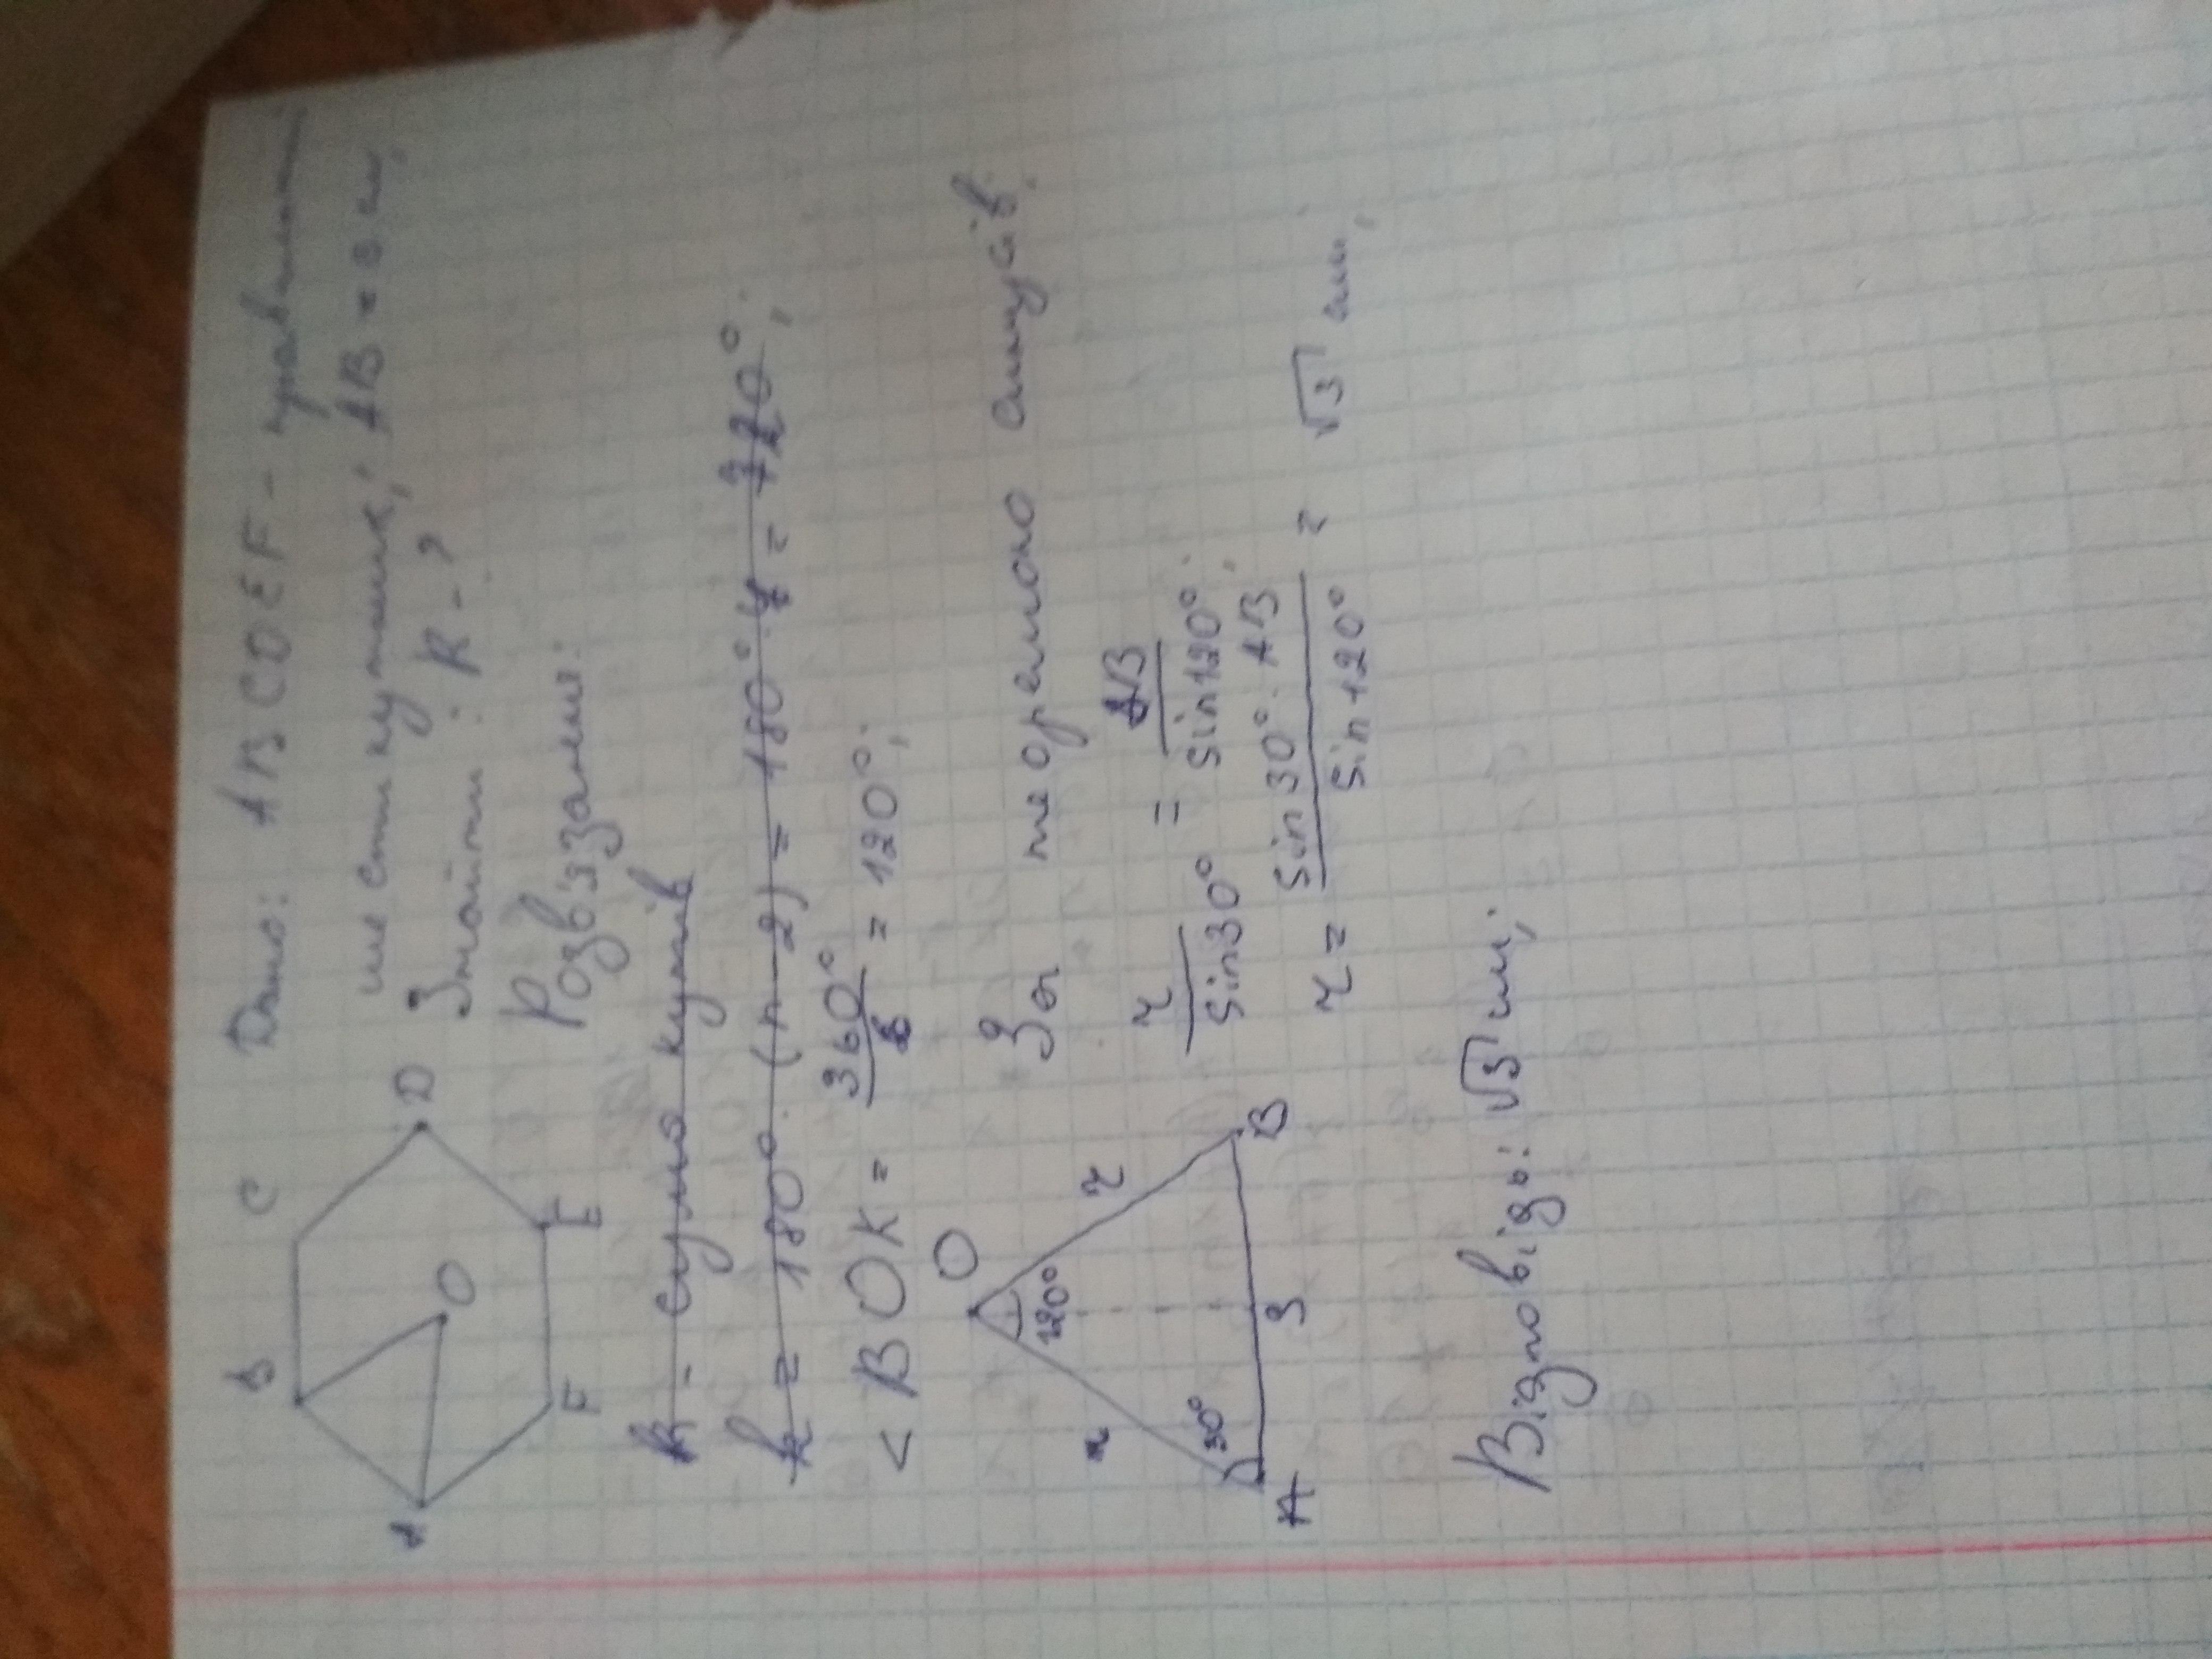 Дано: ABCDEF - правильний
шестикутник; AB = 3 см;
Знайти: R - ?
Розв'язання:
B C
A O D
F E
k - сума кутів
k = 180° · (n - 2) = 180° · 4 = 720°;
< BOK = 360°/6 = 120°;
За теоремою синусів:
O
120°
30°
r r
A 3 B
r/sin30° = AB/sin120°;
r = sin30° · AB/sin120° = √3 см;
Відповідь: √3 см;